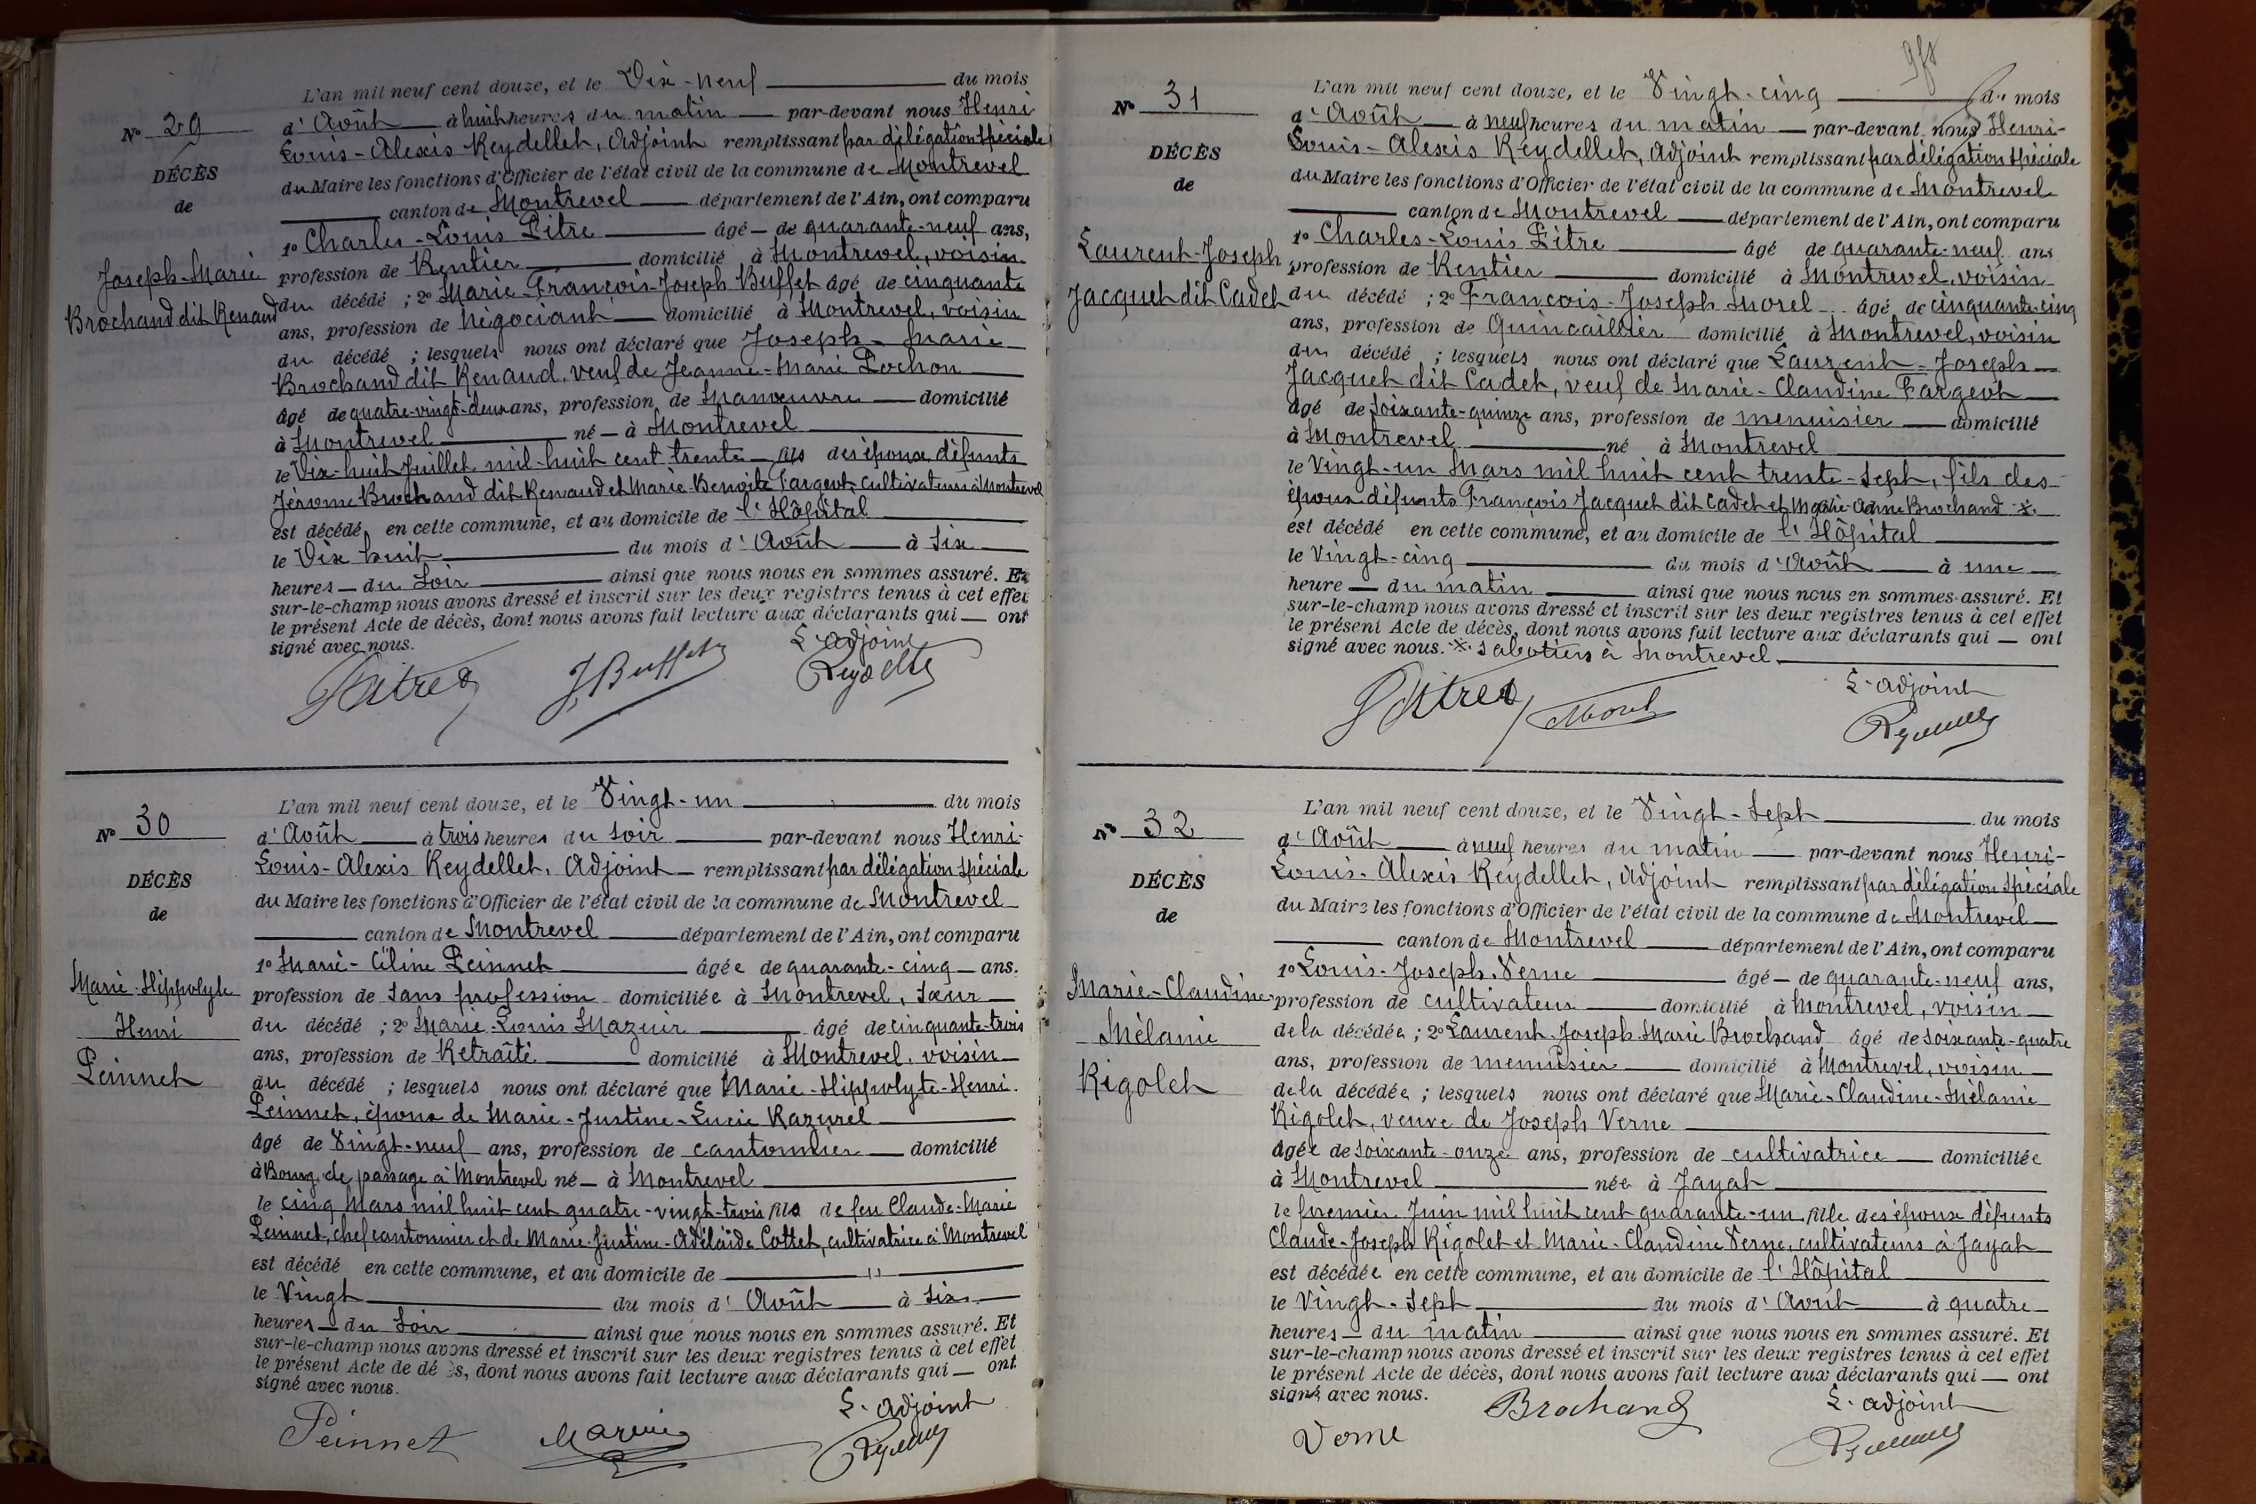 L'an mil neuf cent douze, et le Dix-neuf du mois
N° 29
d'Août à huit heures du matin par-devant nous Henri
Louis-Alexis Reydellet, Adjoint remplissant par délégation spéciale
DÉCÈS
du Maire les fonctions d'Officier de l'état civil de la commune de Montrevel
de
canton de Montrevel département de l'Ain, ont comparu
1° Charles-Louis Pitre âgé de quarante-neuf ans,
Joseph-Marie
profession de Rentier domicilié à Montrevel, voisin
Brochand dit Renaud
du décédé ; 2° Marie-François-Joseph Buffet âgé de cinquante
ans, profession de négociant domicilié à Montrevel, voisin
du décédé ; lesquels nous ont déclaré que Joseph-Marie
Brochand dit Renaud, veuf de Jeanne-Marie Pochon
âgé de quatre-vingt-deux ans, profession de Manœuvre domicilié
à Montrevel né à Montrevel
le Dix-huit Juillet mil-huit cent trente fils des époux défunts
Jérome Brochand dit Renaud et Marie-Benoite Fargeot, cultivateurs à Montrevel
est décédé en cette commune, et au domicile de l'Hôpital
le Dix huit du mois d'Août à six
heures du soir ainsi que nous nous en sommes assuré. Et
sur-le-champ nous avons dressé et inscrit sur les deux registres tenus à cet effet
le présent Acte de décès, dont nous avons fait lecture aux déclarants qui ont
signé avec nous.
L'adjoint
Pitre J. Buffet Reydellet
L'an mil neuf cent douze, et le Vingt-un du mois
N° 30
d'Août à trois heures du soir par-devant nous Henri-
Louis-Alexis Reydellet, Adjoint remplissant par délégation spéciale
DÉCÈS
du Maire les fonctions d'Officier de l'état civil de la commune de Montrevel
de
canton de Montrevel département de l'Ain, ont comparu
1° Marie-Céline Peinnet âgée de quarante-cinq ans.
Marie-Hippolyte
profession de sans profession domiciliée à Montrevel, sœur
Henri
du décédé ; 2° Marie-Louis Mazuir âgé de cinquante-trois
ans, profession de Retraité domicilié à Montrevel, voisin
Peinnet
du décédé ; lesquels nous ont déclaré que Marie-Hippolyte-Henri
Peinnet, époux de Marie-Justine-Lucie Razurel
âgé de Vingt-neuf ans, profession de cantonnier domicilié
à Bourg, de passage à Montrevel né à Montrevel
le cinq Mars mil huit cent quatre-vingt-trois fils de feu Claude-Marie
Peinnet, chef cantonnier et de Marie-Justine-Adélaïde Cottet, cultivatrice à Montrevel
est décédé en cette commune, et au domicile de "
le Vingt du mois d'Août à six
heures du soir ainsi que nous nous en sommes assuré. Et
sur-le-champ nous avons dressé et inscrit sur les deux registres tenus à cet effet
le présent Acte de décès, dont nous avons fait lecture aux déclarants qui ont
signé avec nous.
L'adjoint
Peinnet Mazuir Reydellet
L'an mil neuf cent douze, et le Vingt-cinq du mois
N° 31
d'Août à neuf heures du matin par-devant nous Henri-
Louis-Alexis Reydellet, Adjoint remplissant par délégation spéciale
DÉCÈS
du Maire les fonctions d'Officier de l'état civil de la commune de Montrevel
de
canton de Montrevel département de l'Ain, ont comparu
1° Charles-Louis Pitre âgé de quarante-neuf ans
Laurent-Joseph
profession de Rentier domicilié à Montrevel, voisin
Jacquet dit Cadet
du décédé ; 2° François-Joseph Morel âgé de cinquante-cinq
ans, profession de Quincaillier domicilié à Montrevel, voisin
du décédé ; lesquels nous ont déclaré que Laurent-Joseph
Jacquet dit Cadet, veuf de Marie-Claudine Fargeot
âgé de soixante-quinze ans, profession de menuisier domicilié
à Montrevel né à Montrevel
le Vingt-un Mars mil huit cent trente-sept, fils des
époux défunts François Jacquet dit Cadet et Marie-Anne Brochand *
est décédé en cette commune, et au domicile de l'Hôpital
le Vingt-cinq du mois d'Août à une
heure du matin ainsi que nous nous en sommes assuré. Et
sur-le-champ nous avons dressé et inscrit sur les deux registres tenus à cet effet
le présent Acte de décès, dont nous avons fait lecture aux déclarants qui ont
signé avec nous. * sabotiers à Montrevel
L'adjoint
Pitre Morel Reydellet
L'an mil neuf cent douze, et le Vingt-sept du mois
N° 32
d'Août à neuf heures du matin par-devant nous Henri-
Louis-Alexis Reydellet, Adjoint remplissant par délégation spéciale
DÉCÈS
du Maire les fonctions d'Officier de l'état civil de la commune de Montrevel
de
canton de Montrevel département de l'Ain, ont comparu
1° Louis-Joseph Verne âgé de quarante-neuf ans,
Marie-Claudine
profession de cultivateur domicilié à Montrevel, voisin
Mélanie
de la décédée ; 2° Laurent-Joseph-Marie Brochand âgé de soixante-quatre
ans, profession de menuisier domicilié à Montrevel, voisin
Rigolet
de la décédée ; lesquels nous ont déclaré que Marie-Claudine-Mélanie
Rigolet, veuve de Joseph Verne
âgée de soixante-onze ans, profession de cultivatrice domiciliée
à Montrevel née à Jayat
le premier Juin mil huit cent quarante-un fille des époux défunts
Claude-Joseph Rigolet et Marie-Claudine Verne, cultivateurs à Jayat
est décédée en cette commune, et au domicile de l'Hôpital
le Vingt-sept du mois d'Août à quatre
heures du matin ainsi que nous nous en sommes assuré. Et
sur-le-champ nous avons dressé et inscrit sur les deux registres tenus à cet effet
le présent Acte de décès, dont nous avons fait lecture aux déclarants qui ont
signé avec nous.
Brochand L'adjoint
Verne Reydellet